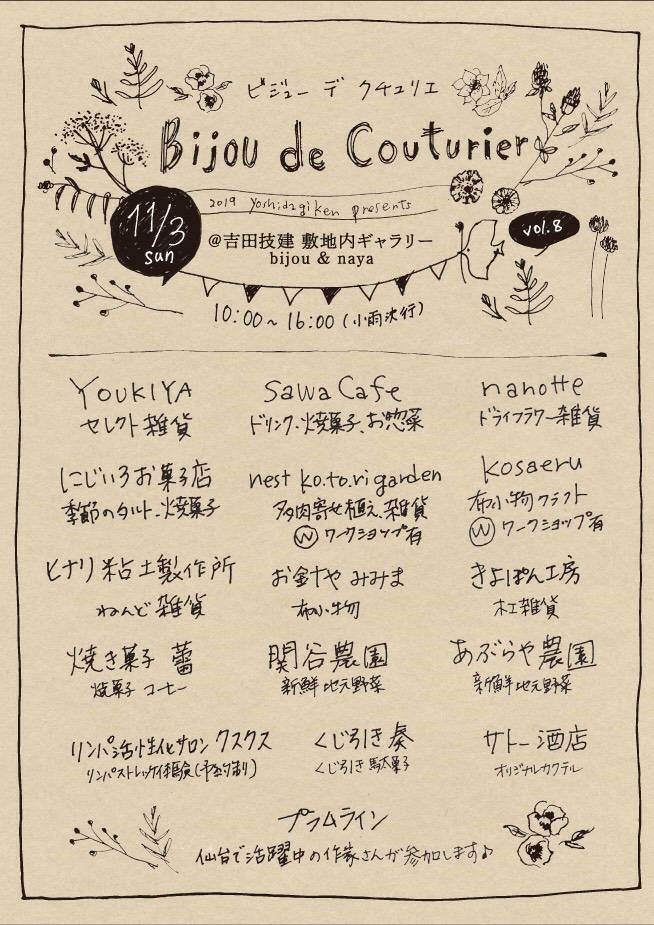 ビジュー デ クチュリエ
Bijou de Couturier
2019 Yoshidagiken presents
11/3
sun
@吉田技建 敷地内ギャラリー
bijou & naya
vol.8
10:00~16:00(小雨決行)
YOUKIYA
セレクト雑貨
sawa Cafe
ドリンク、焼菓子、お惣菜
nanotte
ドライフラワー雑貨
にじいろお菓子店
季節のタルト、焼菓子
nest ko.to.ri garden
多肉寄せ植え、雑貨
W ワークショップ有
kosaeru
布小物クラフト
W ワークショップ有
ヒナリ粘土製作所
ねんど雑貨
お針や みみま
布小物
きよぽん工房
木工雑貨
焼き菓子 蕾
焼菓子 コーヒー
関谷農園
新鮮地元野菜
あぶらや農園
新鮮地元野菜
リンパ活性化サロン クスクス
リンパストレッチ体験(予約制)
くじ引き 奏
くじ引き 駄菓子
サトー酒店
オリジナルカクテル
プラムライン
仙台で活躍中の作家さんが参加します♪